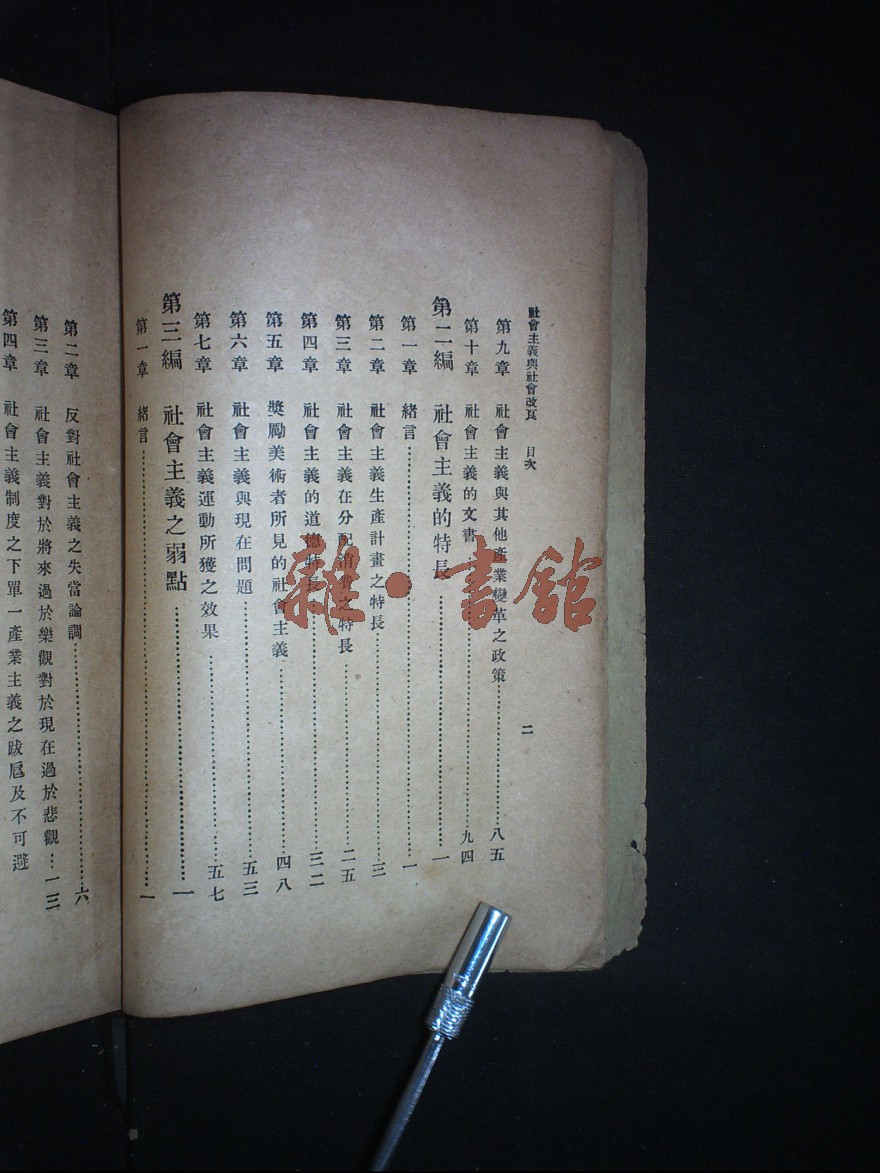 社會主義與社會改良 目次 二
第九章 社會主義與其他產業變革之政策 八五
第十章 社會主義的文書 九四
第二編 社會主義的特長 一
第一章 緒言 一
第二章 社會主義生產計畫之特長 三
第三章 社會主義在分配消費之特長 二五
第四章 社會主義的道德特長 三二
第五章 獎勵美術者所見的社會主義 四八
第六章 社會主義與現在問題 五三
第七章 社會主義運動所獲之效果 五七
第三編 社會主義之弱點 一
第一章 緒言 一
第二章 反對社會主義之失當論調 六
第三章 社會主義對於將來過於樂觀對於現在過於悲觀 一三
第四章 社會主義制度之下單一產業主義之跋扈及不可避
雜·書館